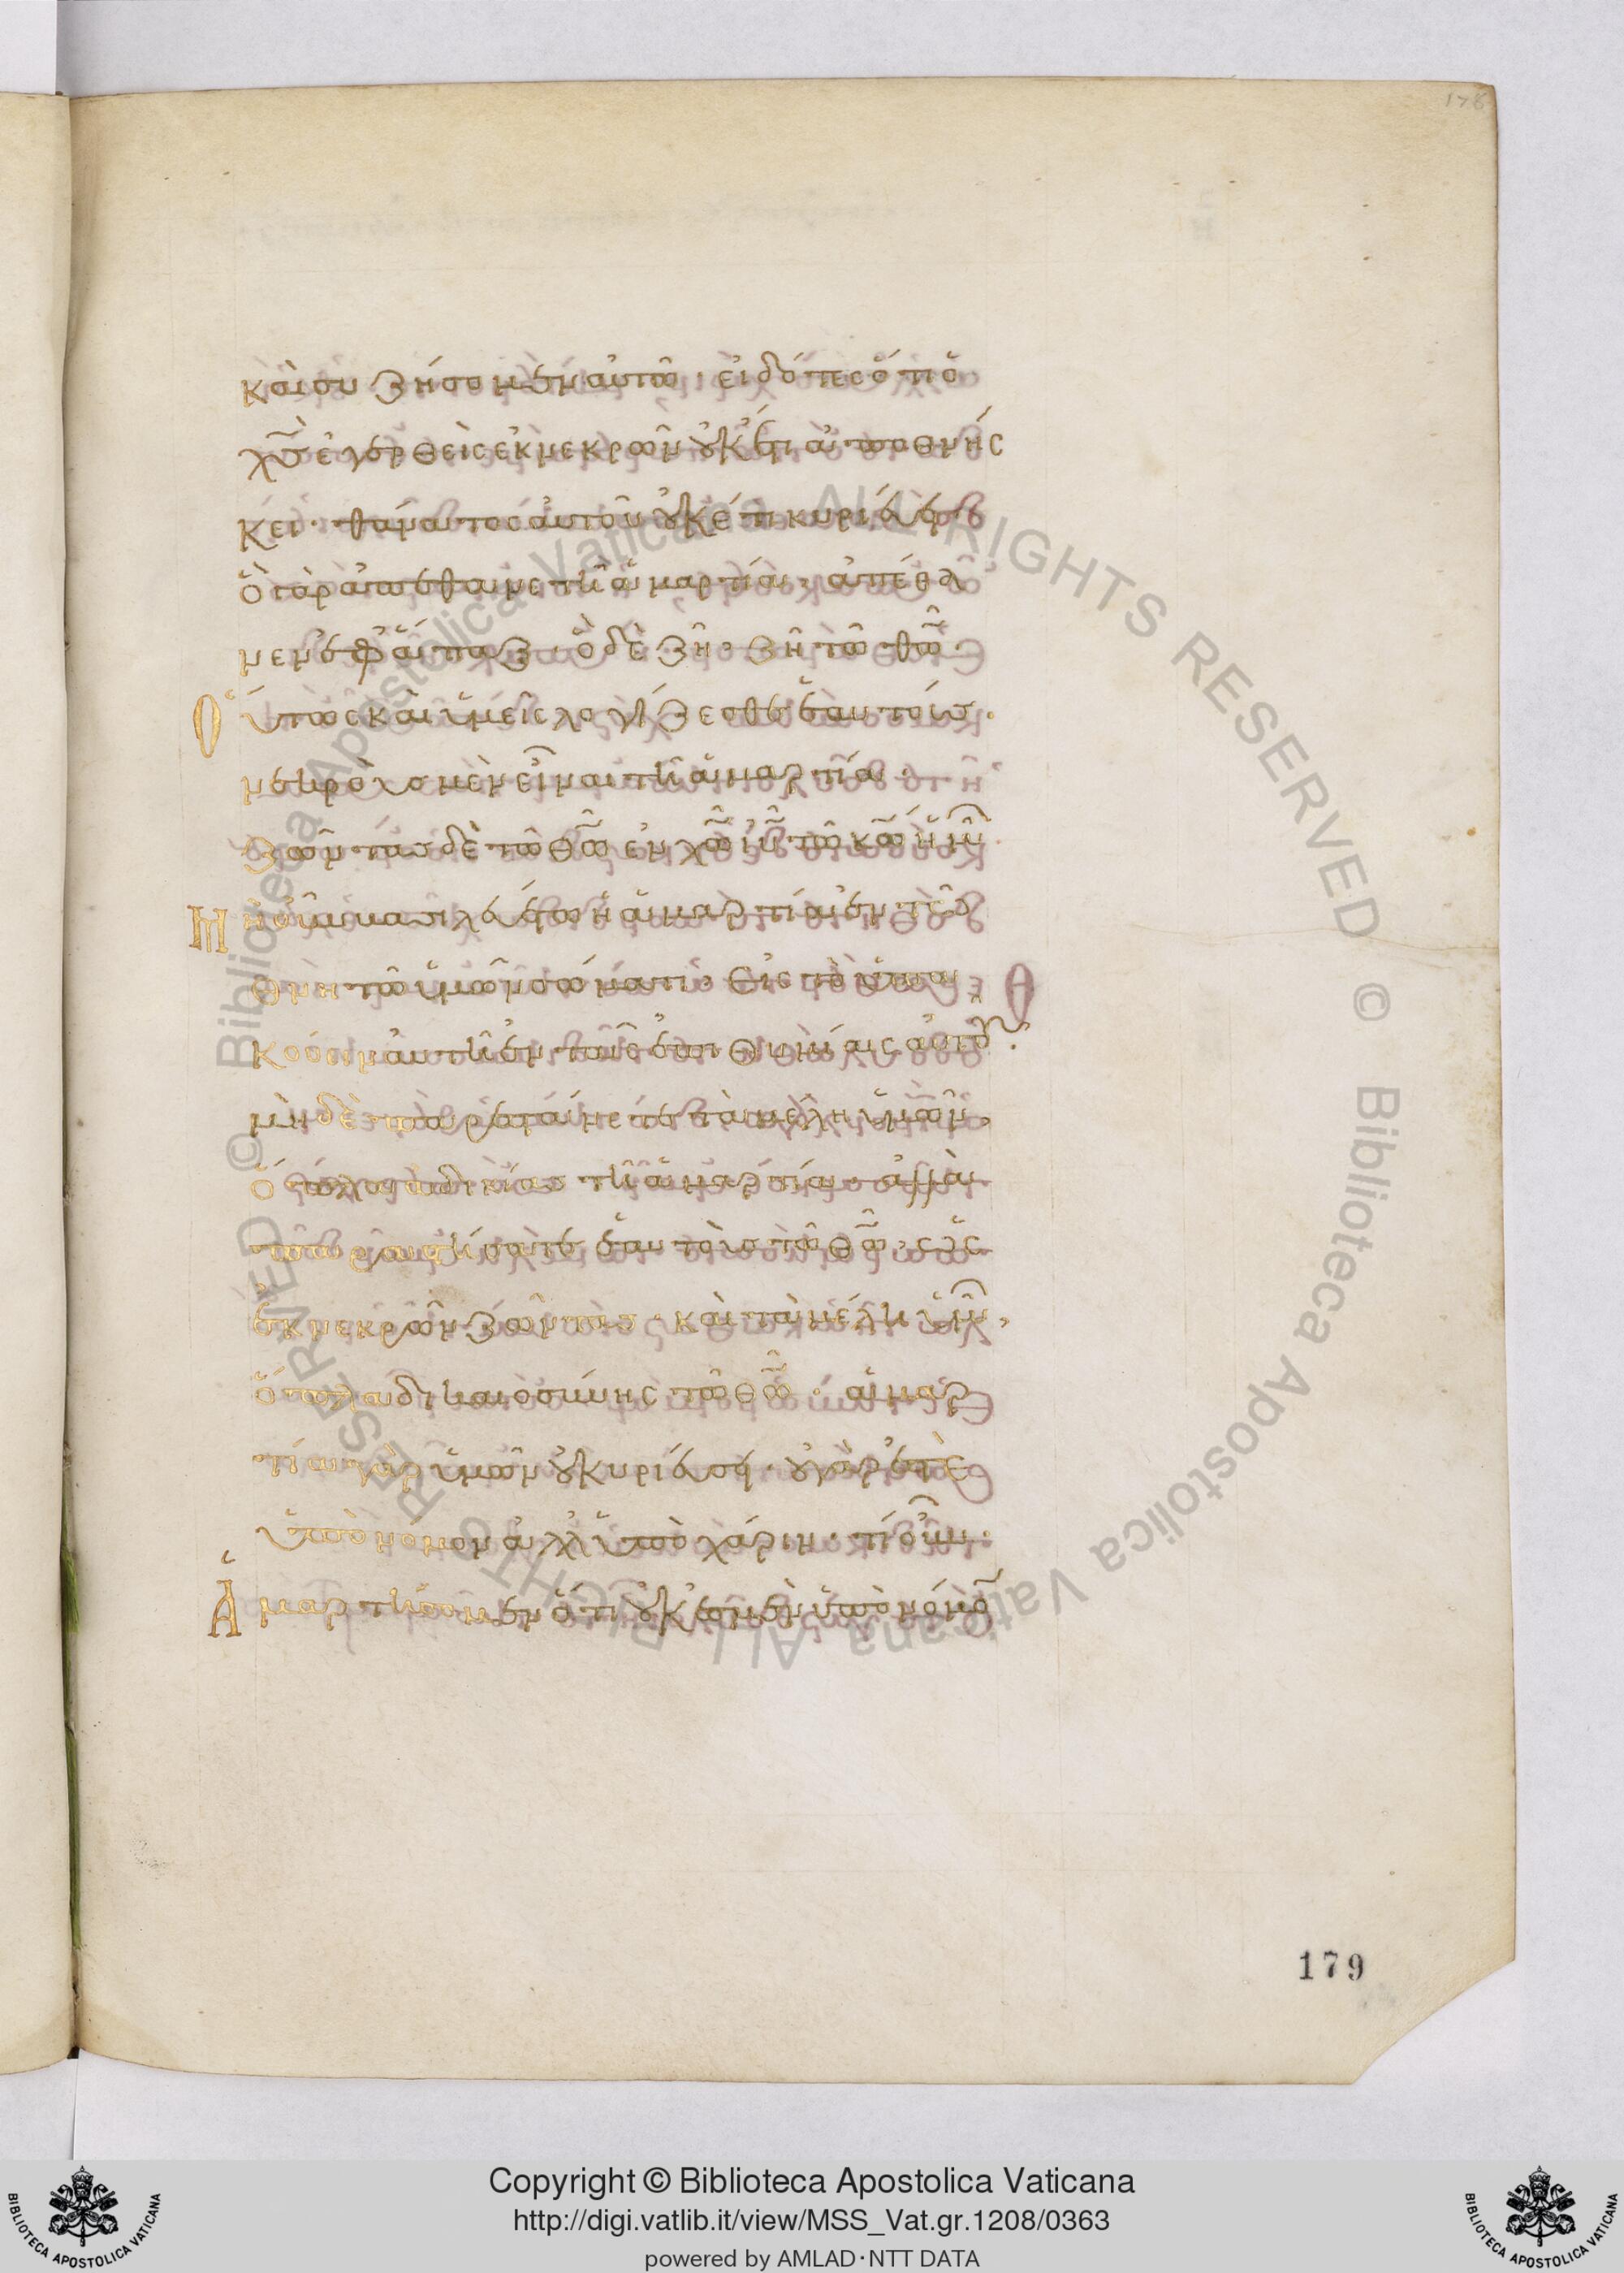 καὶ συζήσομεν αὐτῶ· εἰδότες ὅτι ὁ
χ̅ς̅ ἐγερθεὶς ἐκ νεκρῶν οὐκέτι ἀποθνήσ
κει· θάνατος αὐτοῦ οὐκέτι κυριεύει·
ὃ γὰρ ἀπέθανε τῆ ἁμαρτία, ἀπέθα
νεν ἐφάπαξ· ὃ δὲ ζῆ· ζῆ τῶ θ̅ω̅·
Οὕτως καὶ ὑμεῖς λογίζεσθε ἑαυτούς·
νεκροὺς μὲν εἶναι τῆ ἁμαρτία·
ζῶντας δὲ τῶ θ̅ω̅ ἐν χ̅ω̅ ι̅υ̅ τῶ κ̅ω̅ ἡμῶν·
Μὴ οὖν βασιλευέτω ἡ ἁμαρτία ἐν τῶ
θνητῶ ὑμῶν σώματι· εἰς τὸ ὑπα
κούειν αὐτῆ ἐν ταῖς ἐπιθυμίαις αὐτοῦ·
μηδὲ παριστάνετε τὰ μέλη ὑμῶν,
ὅπλα ἀδικίας τῆ ἁμαρτία· ἀλλὰ
παραστήσατε ἑαυτοὺς τῶ θ̅ω̅, ὡς
ἐκ νεκρῶν ζῶντας· καὶ τὰ μέλη ὑμῶν,
ὅπλα δικαιοσύνης τῶ θ̅ω̅· ἁμαρ
τία γὰρ ὑμῶν οὐ κυριεύσει· οὐ γάρ ἐστε
ὑπὸ νόμον ἀλλ' ὑπὸ χάριν· τί οὖν·
Ἁμαρτήσομεν ὅτι οὐκ ἐσμὲν ὑπὸ νόμον
179
Copyright © Biblioteca Apostolica Vaticana
http://digi.vatlib.it/view/MSS_Vat.gr.1208/0363
powered by AMLAD·NTT DATA
BIBLIOTECA APOSTOLICA VATICANA
BIBLIOTECA APOSTOLICA VATICANA
© Biblioteca Apostolica Vaticana ALL RIGHTS RESERVED © Biblioteca Apostolica Vaticana ALL RIGHTS RESERVED